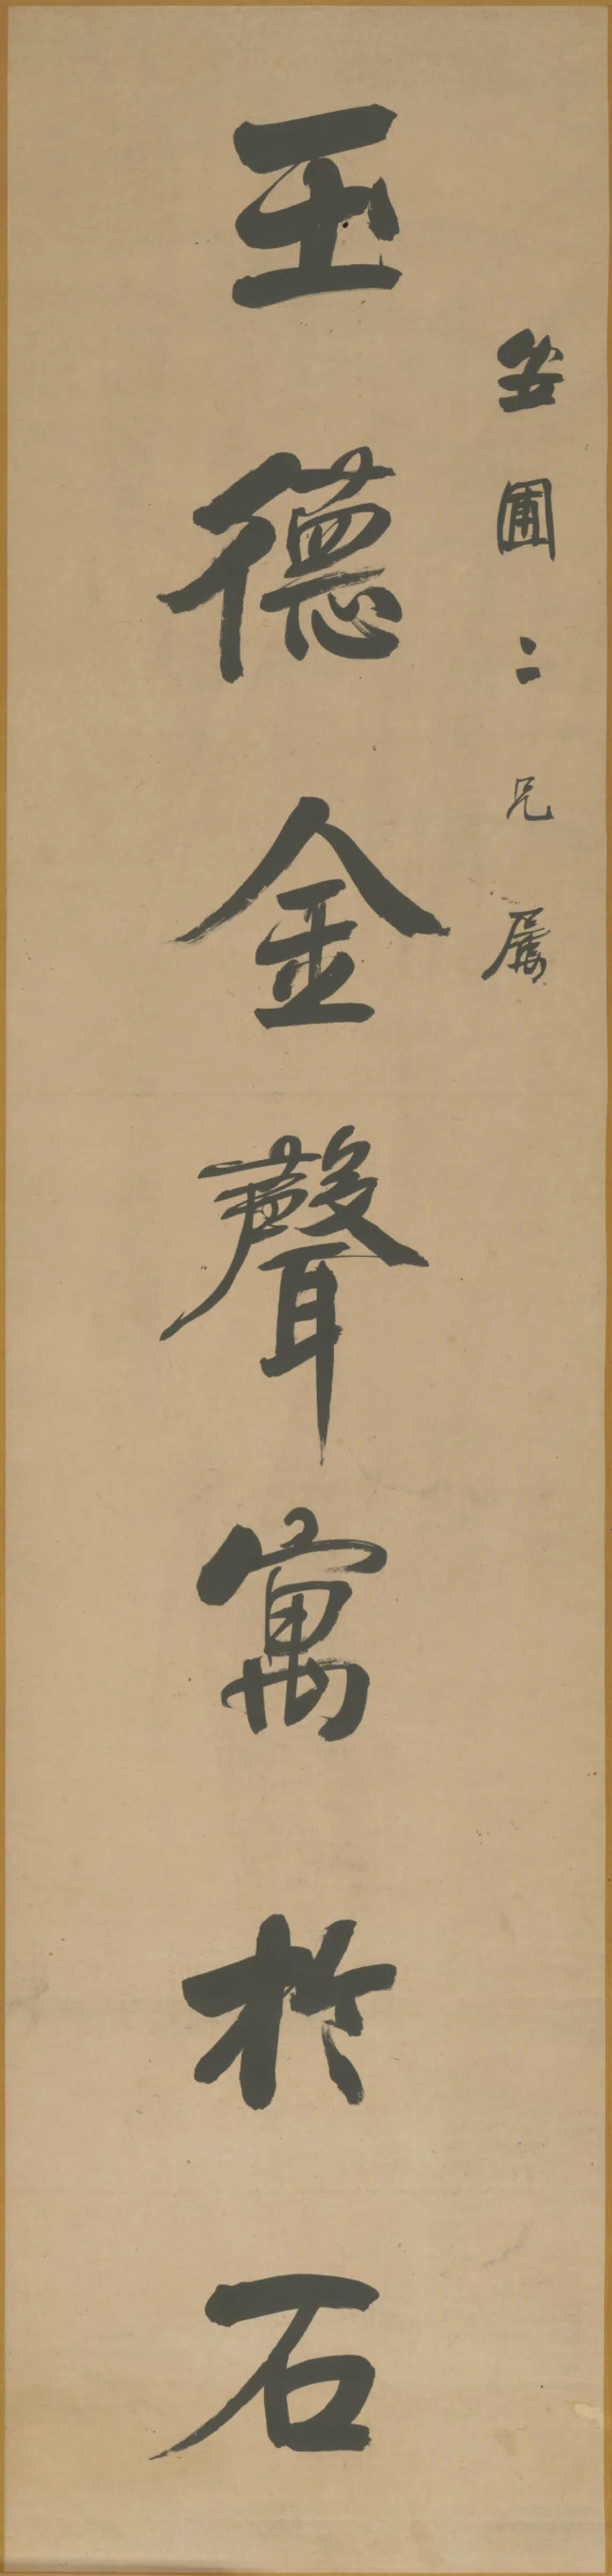 圃二兄屬
玉德金聲寓於石